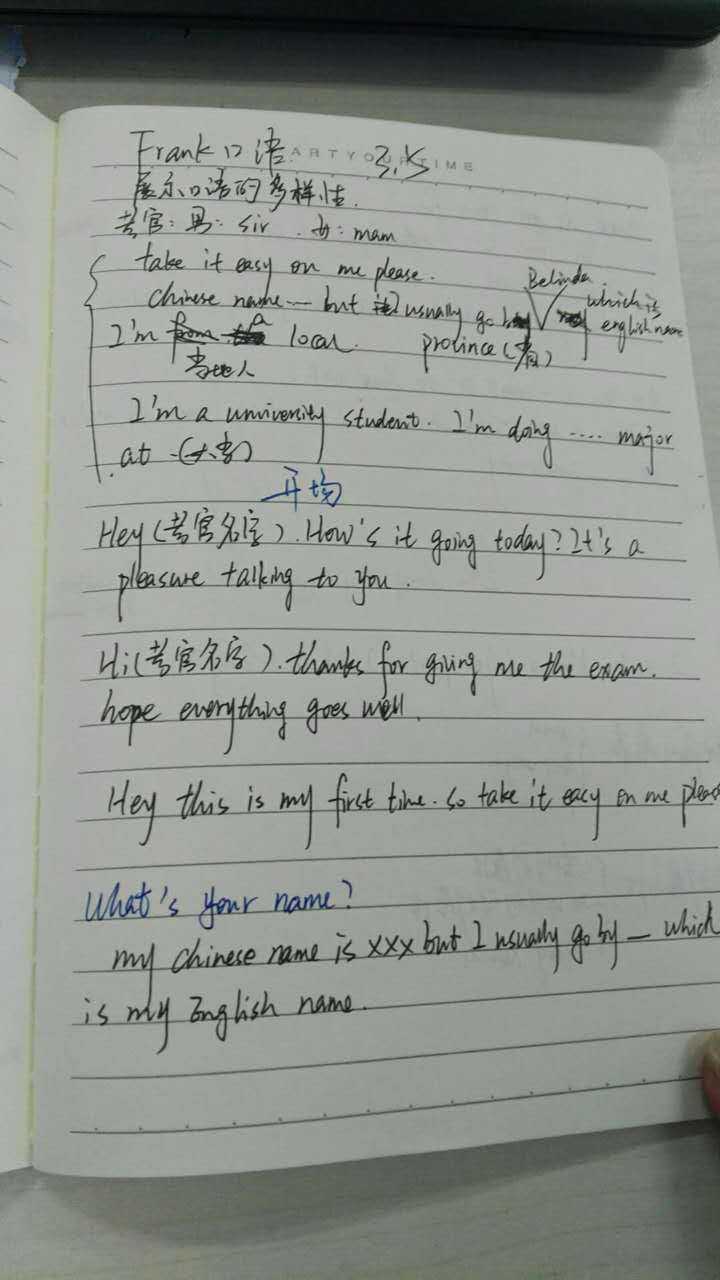 Frank 口语 ARTYOURTIME 3.5
展示口语的多样性.
考官: 男: sir . 女: mam
take it easy on me please. Belinda
Chinese name — but I usually go by which is
english name
I'm a local. province (省)
当地人
I'm a university student. I'm doing .... major
at (大学)
开场
Hey (考官名字). How's it going today? It's a
pleasure talking to you.
Hi (考官名字). thanks for giving me the exam.
hope everything goes well.
Hey this is my first time. so take it easy on me pleas
What's your name?
my chinese name is xxx but I usually go by — which
is my English name.